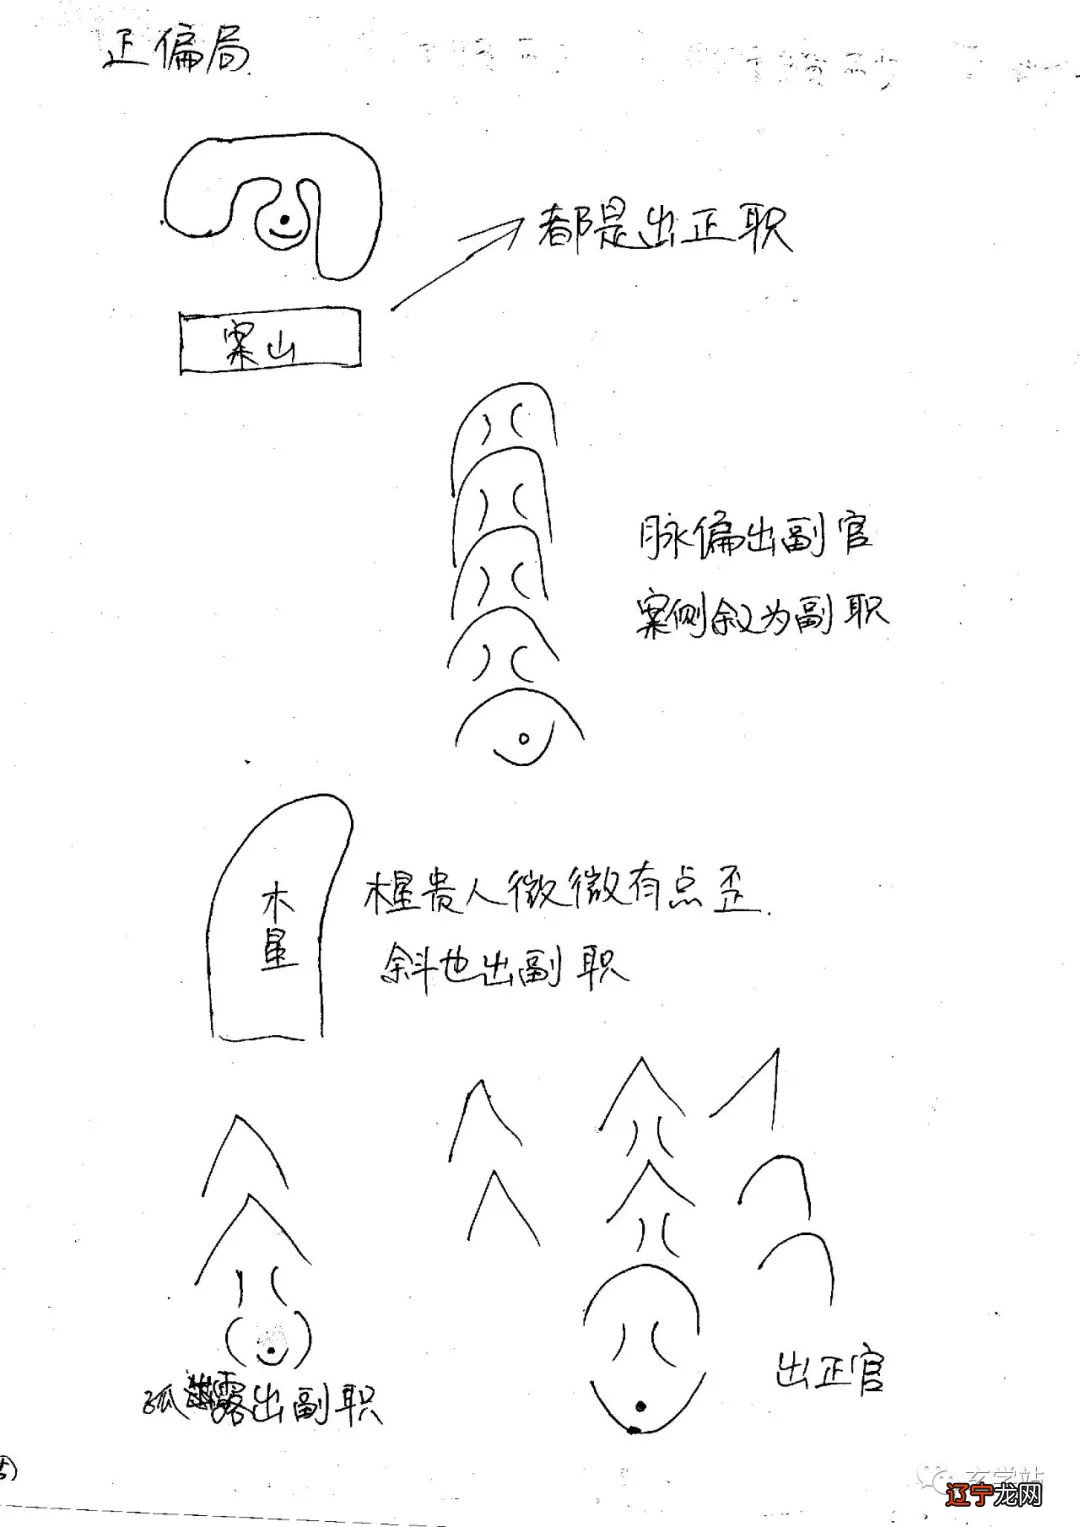 正偏局
都是出正职
案山
脉偏出副官
案侧叙为副职
木星
木星贵人微微有点歪
斜也出副职
孤露出副职
出正官
玄学站
辽宁龙网